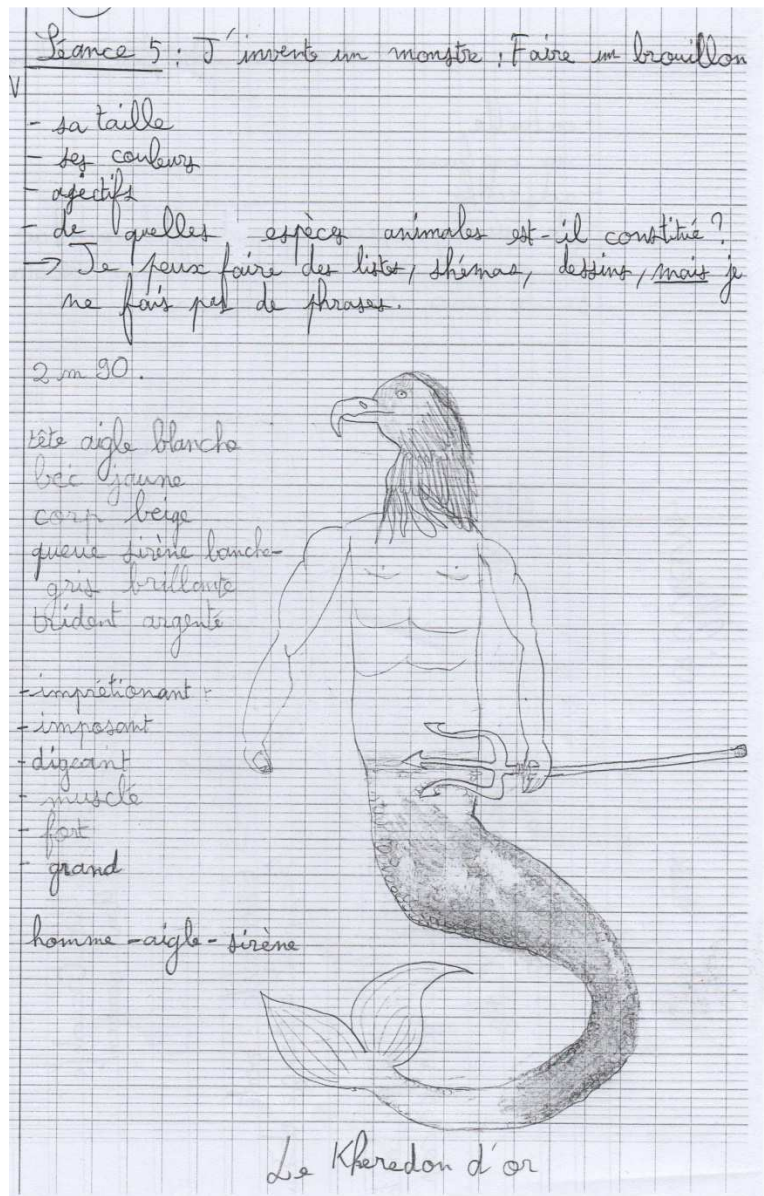 Séance 5 : J'invente un monstre : Faire un brouillon
- sa taille
- ses couleurs
- agectifs
- de quelles espèces animales est-il constitué ?
→ Je peux faire des listes, shémas, dessins, mais je
ne fais pas de phrases.
2 m 90.
tête aigle blanche
bec jaune
corp beige
queue sirène blanche-
gris brillante
trident argenté
- imprétionant
- imposant
- digeant
- musclé
- fort
- grand
homme - aigle - sirène
Le Kheredon d'or